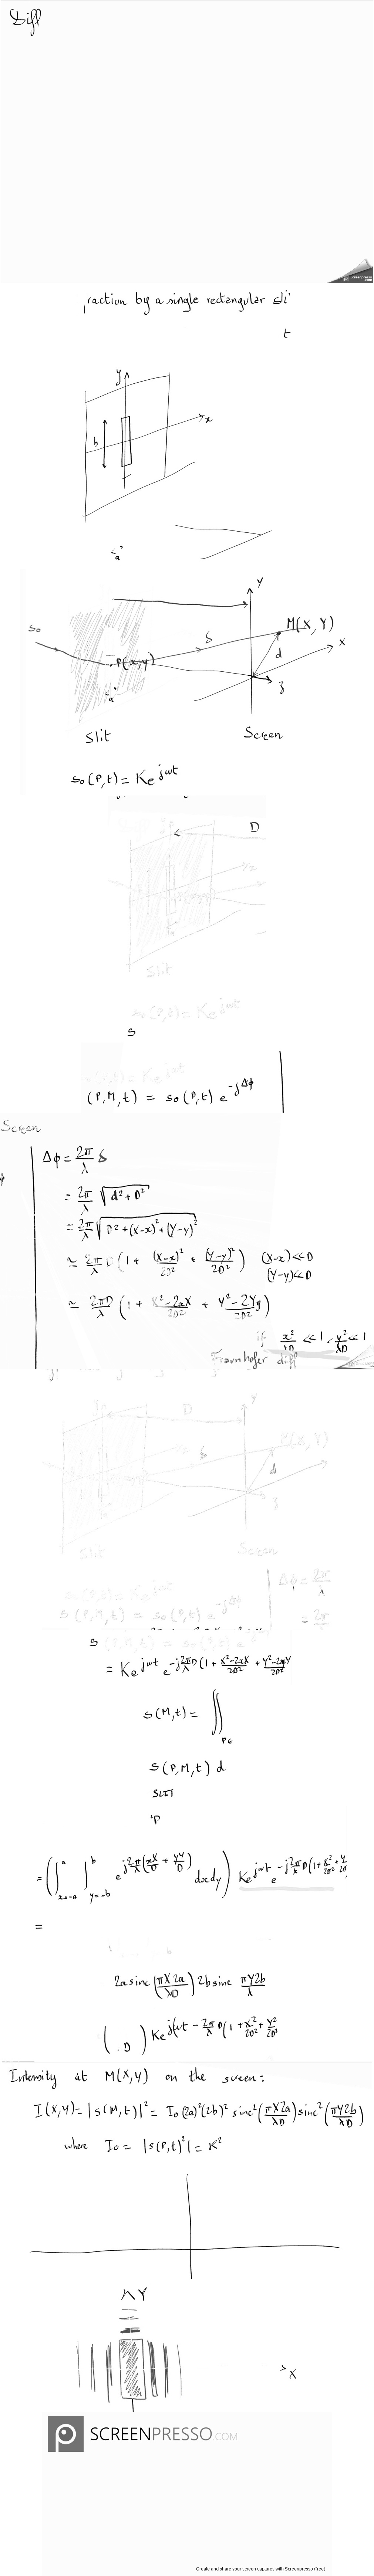 Diff
Screenpresso
raction by a single rectangular sli
t
y
x
b
a
Y
M(X, Y)
X
s0
δ
d
P(x,y)
z
a
Slit
Screen
s0(P,t) = Ke^jωt
D
Slit
s0(P,t) = Ke^jωt
s
(P,M,t) = s0(P,t) e^-jΔϕ
Screen
Δϕ = 2π/λ δ
ϕ
= 2π/λ √(d²+D²)
= 2π/λ √(D²+(X-x)²+(Y-y)²)
≃ 2π/λ D (1 + (X-x)²/2D² + (Y-y)²/2D²) (X-x)<<D
(Y-y)<<D
≃ 2πD/λ (1 + X²-2xX/2D² + Y²-2Yy/2D²)
if x²/λD <<1, y²/λD <<1
Fraunhofer diff
Y
D
M(X, Y)
δ
d
z
Slit
Screen
s0(P,t) = Ke^jωt
Δϕ = 2π/λ
s(P,M,t) = s0(P,t) e^-jΔϕ
= 2π
s(P,M,t) = s0(P,t) e
= Ke^jωt e^-j2π/λ D(1 + X²-2xX/2D² + Y²-2yY/2D²
s(M,t) = ∬
P∈
s(P,M,t) d
SLIT
P
= (∫x=-a^a ∫y=-b^b e^j2π/λ(xX/D + yY/D) dxdy) Ke^jωt e^-j2π/λ D(1+X²/2D²+Y²/2D²)
=
2a sinc (πX2a/λD) 2b sinc πY2b/λ
( D ) Ke^j(ωt - 2π/λ D(1+X²/2D²+Y²/2D²
Intensity at M(X,Y) on the screen:
I(X,Y) = |s(M,t)|² = I0 (2a)²(2b)² sinc²(πX2a/λD) sinc²(πY2b/λD)
where I0 = |s(P,t)²| = K²
Y
X
SCREENPRESSO.COM
Create and share your screen captures with Screenpresso (free)